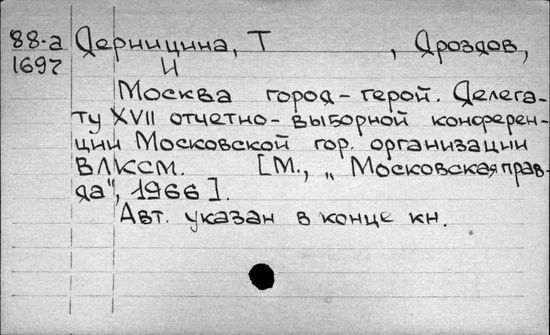 88-а Дерницина, Т , Дроздов,
1697 И
Москва город-герой. Делега-
ту XVII отчетно-выборной конферен-
ции Московской гор. организации
ВЛКСМ. [М., „Московская прав-
да", 1966].
Авт. указан в конце кн.